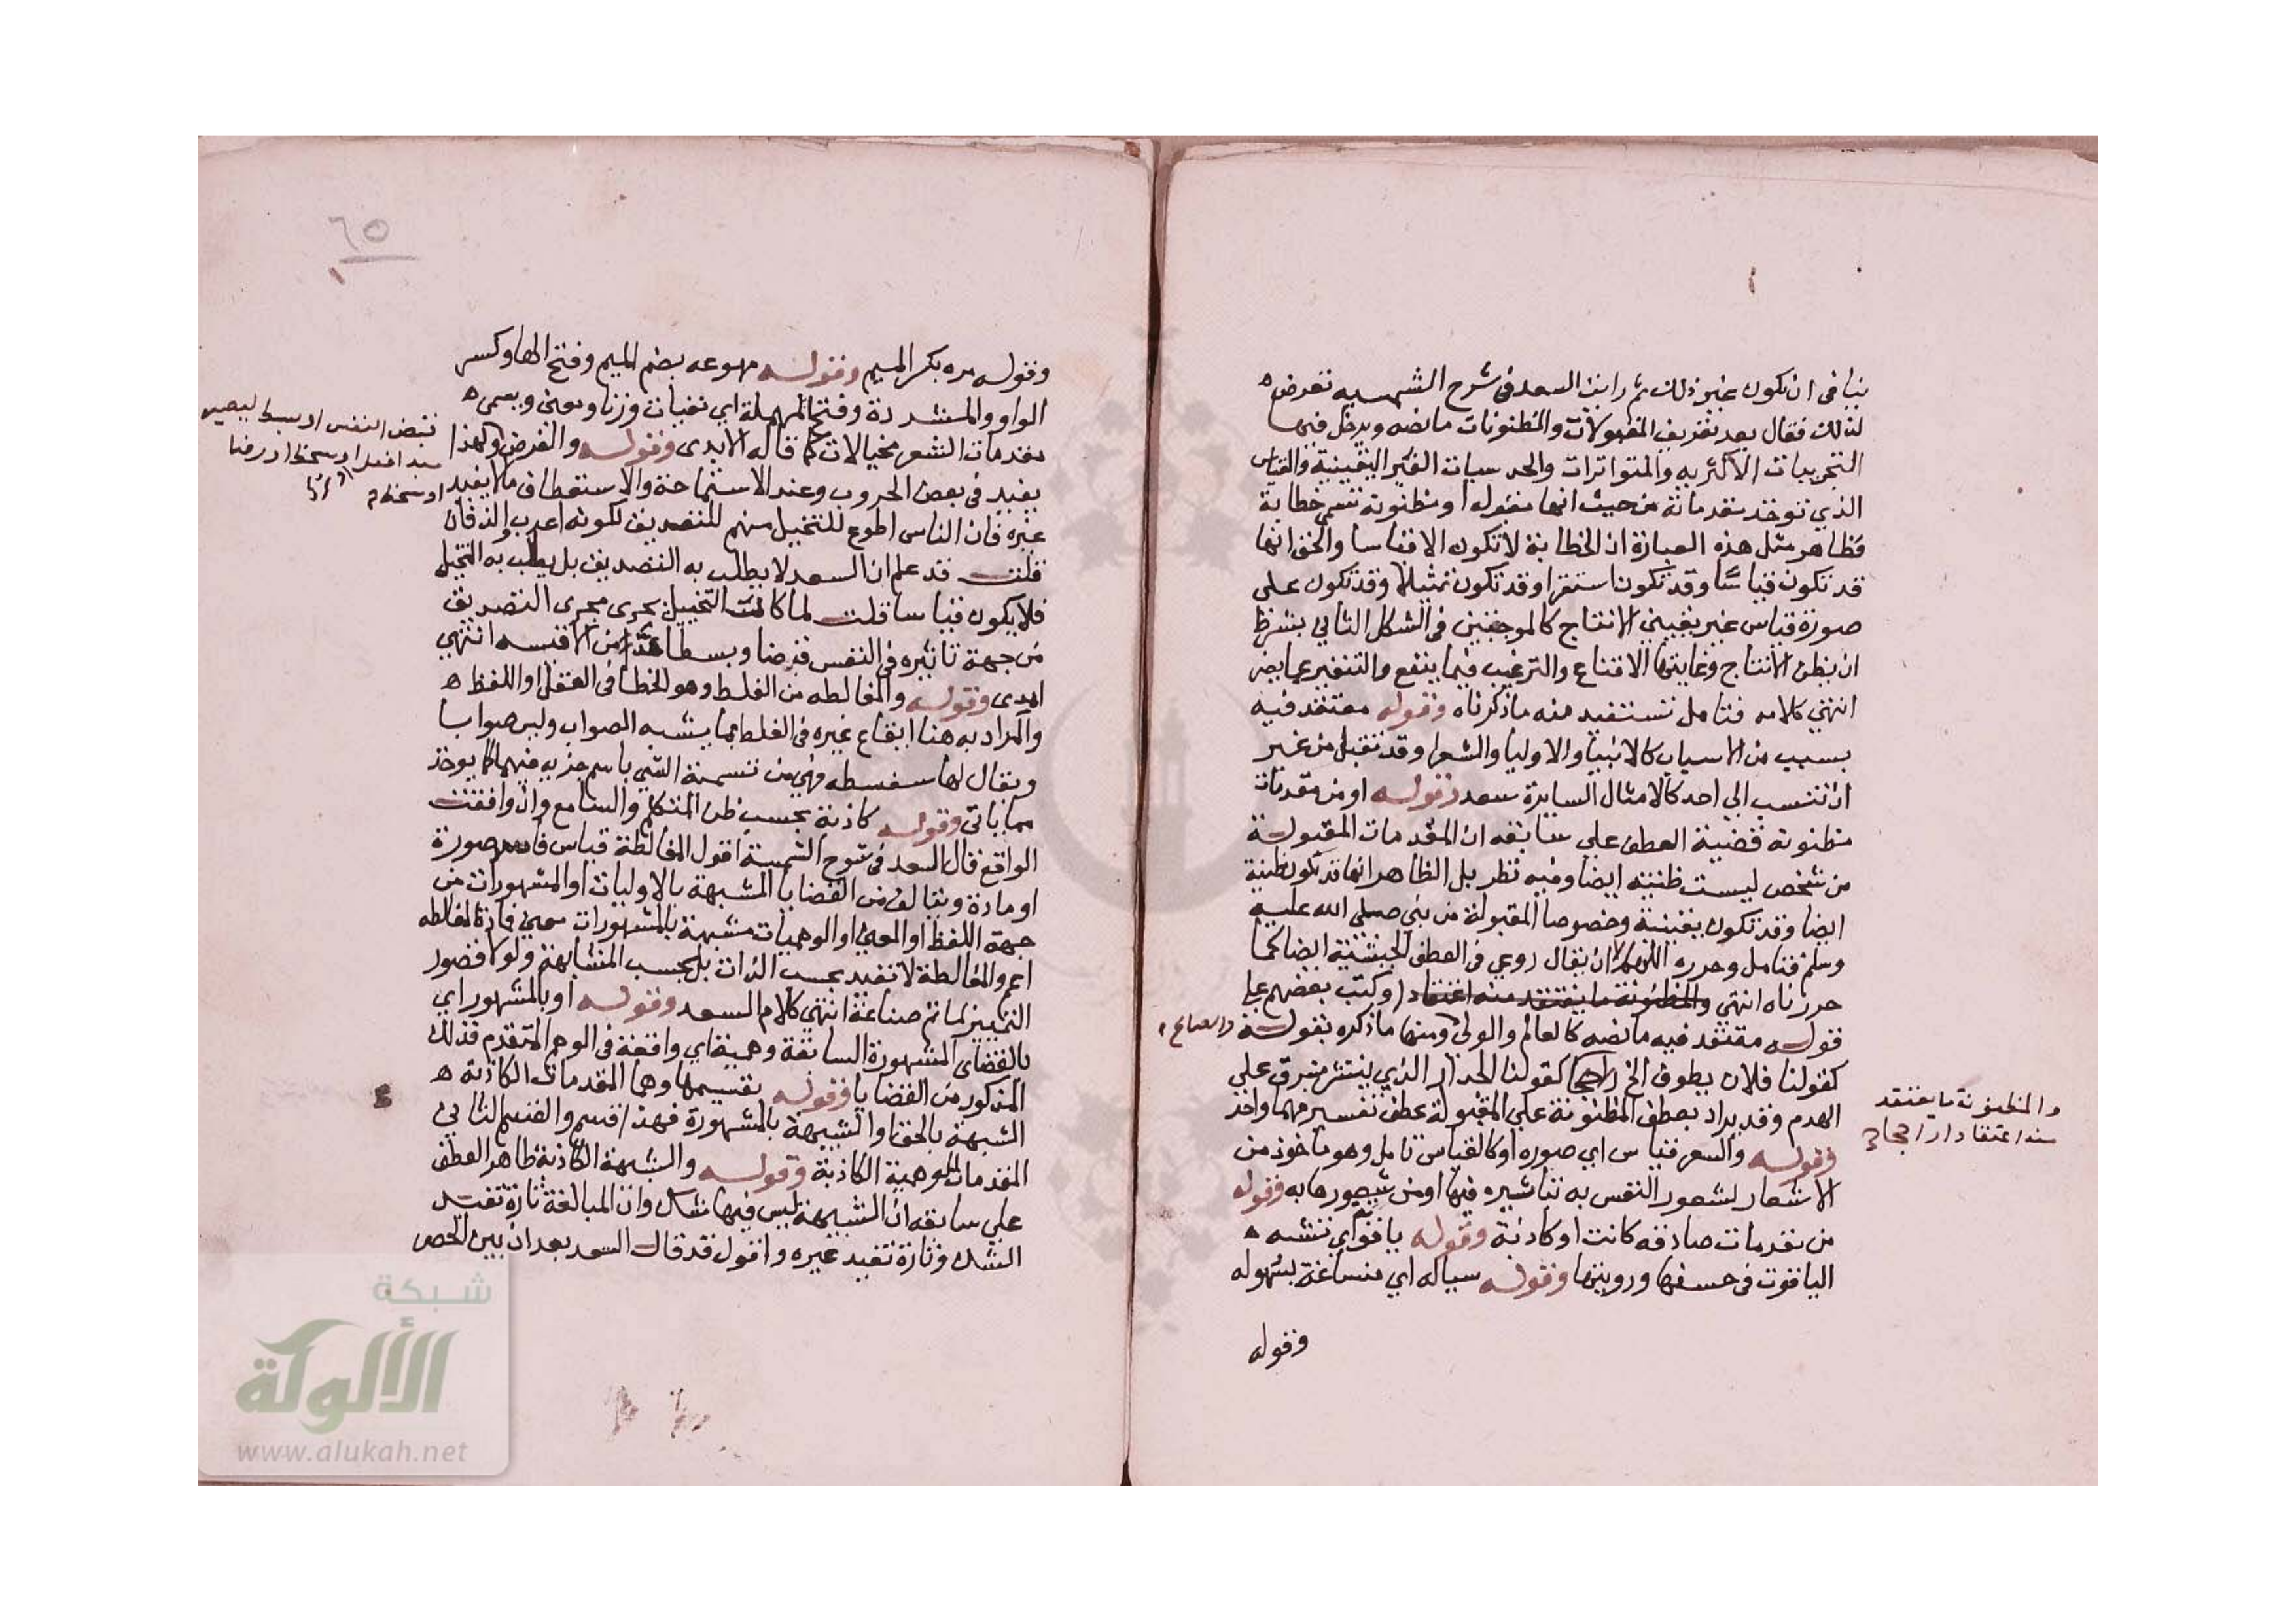 ينافى ان تكون غير ذلك ثم رايت السعد فى شرح الشمسيه تعرض
لذلك فقال بعد تعريف المقبولات والمظنونات مانصه ويدخل فيها
التجربيات الاكثريه والمتواترات والحدسيات الغير اليقينية والقياس
الذي توخذ مقدماته من حيث انها مقبوله او مظنونة تسمى خطابة
فظاهر مثل هذه العبارة ان الخطابة لا تكون الا قياسا والحق انها
قد تكون قياسا وقد تكون استقرا وقد تكون تمثيلا وقد تكون على
صورة قياس غير يقيني الانتاج كالموجبتين فى الشكل الثاني بشرط
ان يظن الانتاج وغايتها الاقناع والترغيب فيما ينفع والتنفير عما يضر
انتهي كلامه فتامل تستفيد منه ماذكرناه وقوله معتقد فيه
بسبب من الاسباب كالانبيا والاوليا والشعرا وقد تقبل من غير
ان تنسب الي احد كالامثال السايرة سعد وقوله او من مقدمات
مظنونة قضية العطف على سابقه ان المقدمات المقبولة
من شخص ليست ظنيته ايضا وفيه نظر بل الظاهر انها قد تكون ظنية
ايضا وقد تكون يقينية وخصوصا المقبولة من نبي صلي الله عليه
وسلم فتامل وحرره اللهم الا ان يقال روعي فى العطف الحيثية ايضا كما
حررناه انتهى والمظنونة ما يعتقد منه اعتقاد ا وكتب بعضهم علي
قوله معتقد فيه مانصه كالعالم والولي ومنها ماذكره بقوله والصالح
كقولنا فلان يطوف الخ كقولنا الجدار الذي ينتثر مشرق علي
والمظنونة ما يعتقد
منه اعتقادا راجحا
الهدم وقد يراد بعطف المظنونة علي المقبولة عطف تفسير مهما واخذ
وقوله والشعر قياس اي صوره او كالقياس تامل وهو ماخوذ من
الاشعار لشعور النفس به تناثيره فيها او من شعورها به وقوله
من مقدمات صادقه كانت او كاذبة وقوله ياقواي تشبه
الياقوت فى حسنها وروينها وقوله سياله اي منساغة بسهوله
وقوله
٦٥
وقوله مره بكر الميم وقوله مهوعه بضم الميم وفتح الها وكسر
الواو والمشددة وفتح المهملة اي تقيات وزنا ومعنى ويسمى
مقدمات الشعر مخيالات كما قاله الابدى وقوله والغرض ولهذا
تقبض النفس او بسط ليصير
مبدا فعل او سخط او رضا
يفيد في بعض الحروب وعند الاستماحة والاستعطاف ما لا يفيد
غيره فان الناس اطوع للتخييل منهم للتصديق لكونه اعذب والذ فان
قلت قد علم ان السعد لا يطلب به التصديق بل يطلب به التخييل
فلا يكون قياسا قلت لما كانت التخييل يجرى مجرى التصديق
من جهة تاثيره فى النفس قبضا وبسطا عد من الاقيسه انتهي
ابدى وقوله والمغالطه من الغلط وهو الخطا فى العقل او اللفظ
والمراد به هنا ايقاع غيره فى الغلط بما يشبه الصواب وليس صوابا
ويقال لها سفسطه فهي من تسمية الشي باسم جزيه منهما كما يوخذ
مما ياتى وقوله كاذبة بحسب ظن المتكلم والسامع وان وافقت
الواقع قال السعد فى شرح الشمسية اقول المغالطة قياس فاسد صورة
او مادة ويتالف من القضايا المشبهة بالاوليات او المشهورات من
جهة اللفظ او المعني او الوهميات مشبهة بالمشهورات معنى فاذا المغالطه
اعم والمغالطة لا تفيد بحسب الذات بل بحسب المشابهة ولولا قصور
التمييز لما تم صناعة انتهي كلام السعد وقوله او بالمشهور اي
بالقضاى المشهورة السابقة وهمية اي واقعة فى الوهم المتقدم فذلك
المذكور من القضايا وقوله بقسيمها وهما المقدمات الكاذبة
الشبهة بالحق او الشبيهة بالمشهورة فهذا قسم والقسم الثاني
المقدمات الوهمية الكاذبة وقوله والشبهة الكاذبة ظاهر العطف
علي سابقه ان المشبهة ليس فيها شك وان المبالغة تارة تفيد
الشك وتارة تفيد غيره واقول قد قال السعد بعد ان بين الخص
شبكة
الألوكة
www.alukah.net